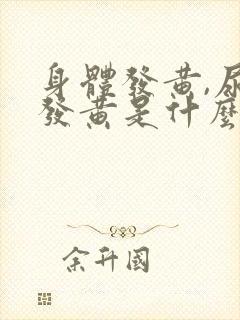 身體發黃,尿
發黃是什麼
余升國